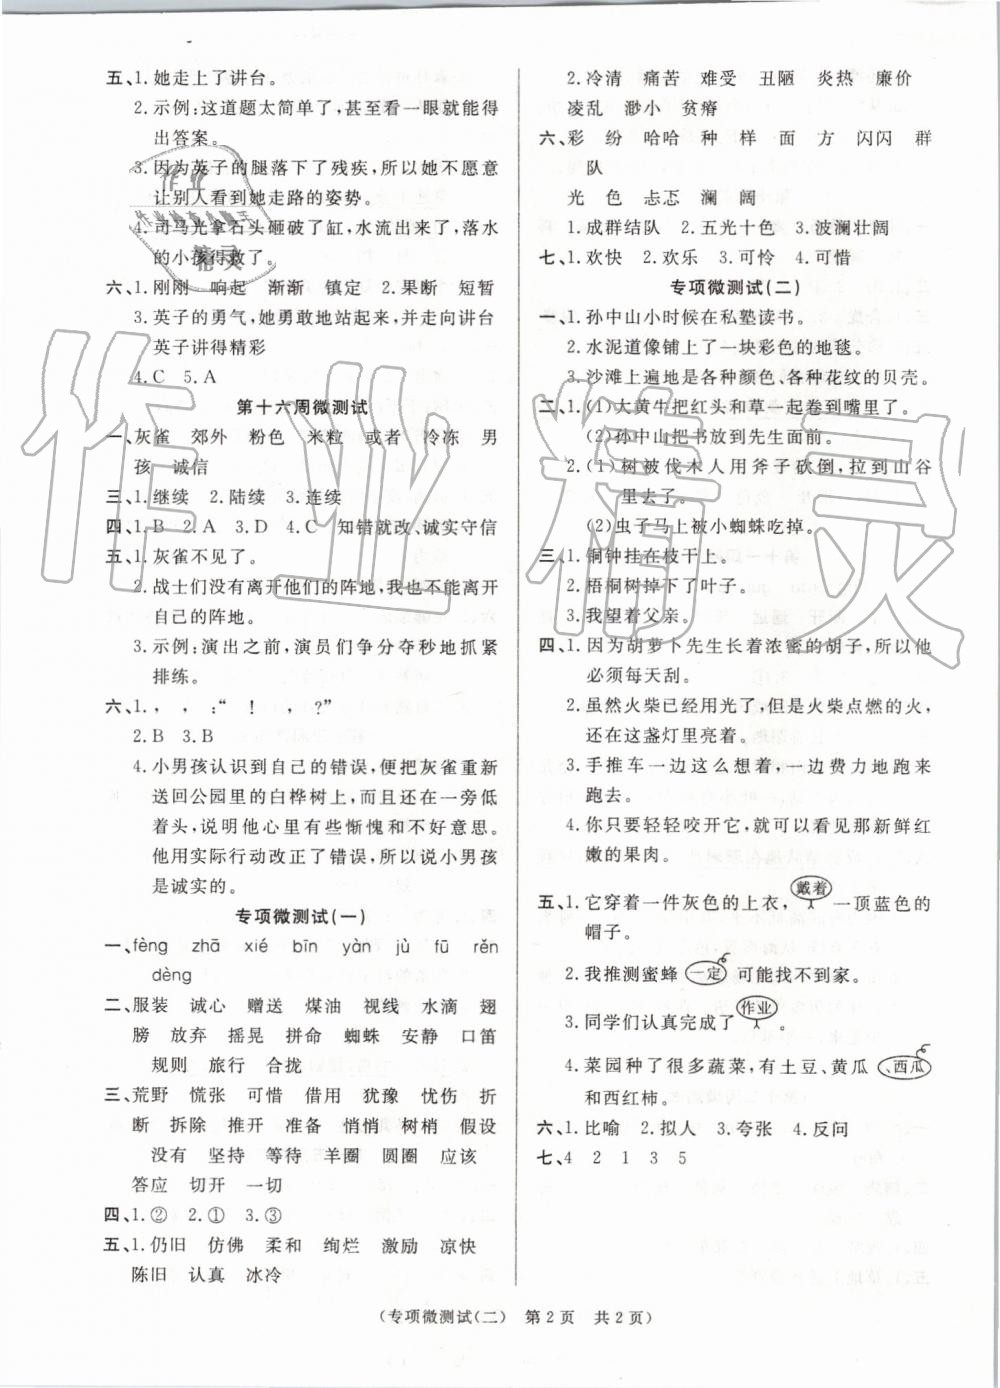 五、1.她走上了讲台。
2.示例:这道题太简单了,甚至看一眼就能得
出答案。
3.因为英子的腿落下了残疾,所以她不愿意
让别人看到她走路的姿势。
4.司马光拿石头砸破了缸,水流出来了,落水
的小孩得救了。
六、1.刚刚 响起 渐渐 镇定 2.果断 短暂
3.英子的勇气,她勇敢地站起来,并走向讲台
英子讲得精彩
4.C 5.A
第十六周微测试
一、灰雀 郊外 粉色 米粒 或者 冷冻 男
孩 诚信
三、1.继续 2.陆续 3.连续
四、1.B 2.A 3.D 4.C 知错就改、诚实守信
五、1.灰雀不见了。
2.战士们没有离开他们的阵地,我也不能离开
自己的阵地。
3.示例:演出之前,演员们争分夺秒地抓紧
排练。
六、1. , , :“ ! , ?”
2.B 3.B
4.小男孩认识到自己的错误,便把灰雀重新
送回公园里的白桦树上,而且还在一旁低
着头,说明他心里有些惭愧和不好意思。
他用实际行动改正了错误,所以说小男孩
是诚实的。
专项微测试(一)
一、fèng zhā xié bīn yàn jù fū rěn
dèng
二、服装 诚心 赠送 煤油 视线 水滴 翅
膀 放弃 摇晃 拼命 蜘蛛 安静 口笛
规则 旅行 合拢
三、荒野 慌张 可惜 借用 犹豫 忧伤 折
断 拆除 推开 准备 悄悄 树梢 假设
没有 坚持 等待 羊圈 圆圈 应该
答应 切开 一切
四、1.② 2.① 3.③
五、1.仍旧 仿佛 柔和 绚烂 激励 凉快
陈旧 认真 冰冷
2.冷清 痛苦 难受 丑陋 炎热 廉价
凌乱 渺小 贫瘠
六、彩 纷 哈哈 种 样 面 方 闪闪 群
队
光 色 忐忑 澜 阔
1.成群结队 2.五光十色 3.波澜壮阔
七、1.欢快 2.欢乐 3.可怜 4.可惜
专项微测试(二)
一、1.孙中山小时候在私塾读书。
2.水泥道像铺上了一块彩色的地毯。
3.沙滩上遍地是各种颜色、各种花纹的贝壳。
二、1.(1)大黄牛把红头和草一起卷到嘴里了。
(2)孙中山把书放到先生面前。
2.(1)树被伐木人用斧子砍倒,拉到山谷
里去了。
(2)虫子马上被小蜘蛛吃掉。
三、1.铜钟挂在枝干上。
2.梧桐树掉下了叶子。
3.我望着父亲。
四、1.因为胡萝卜先生长着浓密的胡子,所以他
必须每天刮。
2.虽然火柴已经用光了,但是火柴点燃的火,
还在这盏灯里亮着。
3.手推车一边这么想着,一边费力地跑来
跑去。
4.你只要轻轻咬开它,就可以看见那新鲜红
嫩的果肉。
戴着
五、1.它穿着一件灰色的上衣, 一顶蓝色的
帽子。
2.我推测蜜蜂 一定 可能找不到家。
作业
3.同学们认真完成了 。
4.菜园种了很多蔬菜,有土豆、黄瓜、西瓜
和西红柿。
六、1.比喻 2.拟人 3.夸张 4.反问
七、4 2 1 3 5
(专项微测试(二) 第2页 共2页)
作业精灵